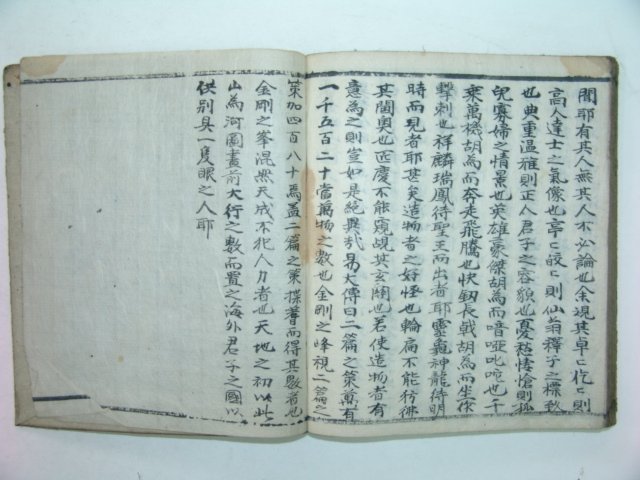 閣耶有其人無其人不必論也余現其卓〻仡〻則
高人達士之氣像也亭〻皎〻則仙翁釋子之標致
也典重温雅則正人君子之容貌也憂愁悽愴則孤
兒寡婦之情景也英雄豪傑胡為而喑啞叱咤也千
乘萬機胡為而奔走飛騰也快釰長戟胡為而坐作
擊刺也祥麟瑞鳳待聖王而出者耶靈龜神龍待明
時而見者耶甚矣造物者之好怪也輪扁不能行
其閫奥也匠慶不能窺覘其玄關也若使造物者有
意為之則豈如是絶異哉易大傳曰二篇之策萬有
一千五百二十當萬物之數也金剛之峰視二篇之
策加四百八十焉盖二篇之策揲蓍而得其數者也
金剛之峯混然天成不犯人力者也天地之初以此
山為河圖畫前大衍之數而置之海外君子之國以
供別具一隻眼之人耶